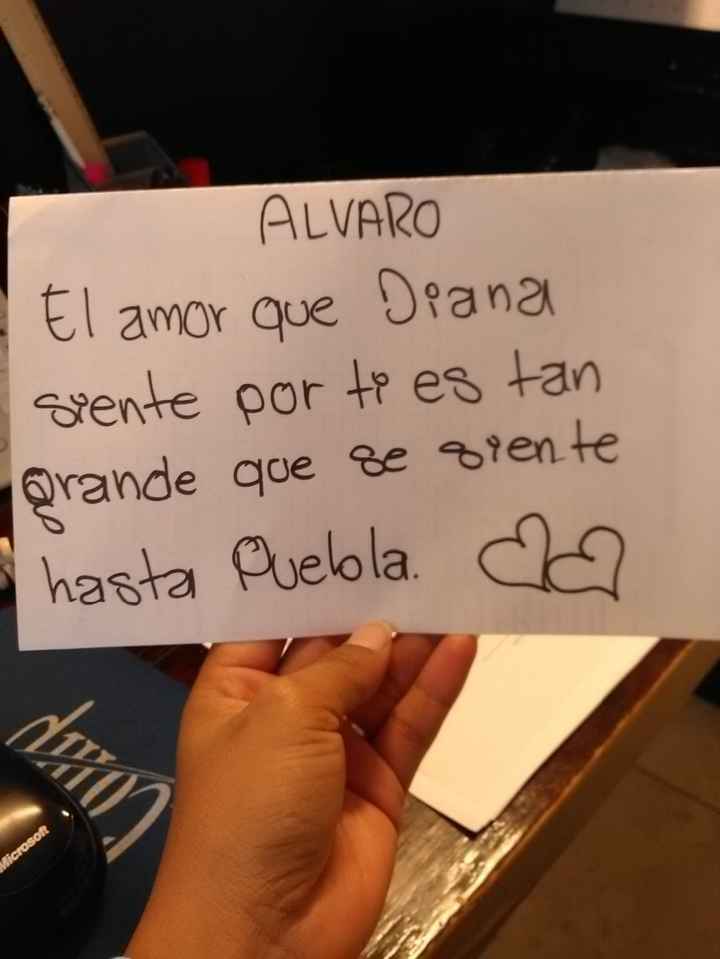 ALVARO
El amor que Diana
siente por ti es tan
grande que se siente
hasta Puebla.
Microsoft